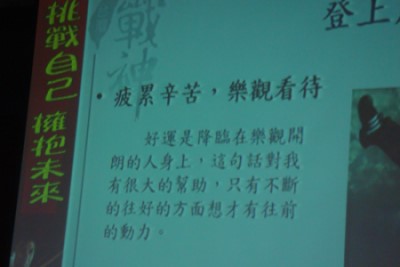 挑戰自己 擁抱未來
戰神
登上
• 疲累辛苦，樂觀看待
好運是降臨在樂觀開
朗的人身上，這句話對我
有很大的幫助，只有不斷
的往好的方面想才有往前
的動力。